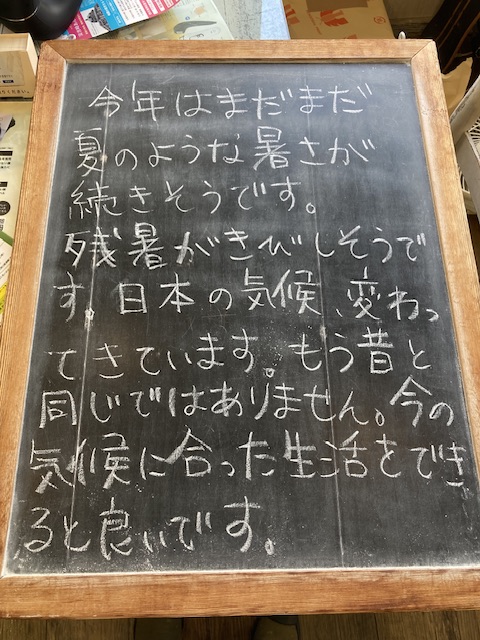 今年はまだまだ
夏のような暑さが
続きそうです。
残暑がきびしそうで
す。日本の気候、変わっ
てきています。もう昔と
同じではありません。今の
気候に合った生活をでき
ると良いです。